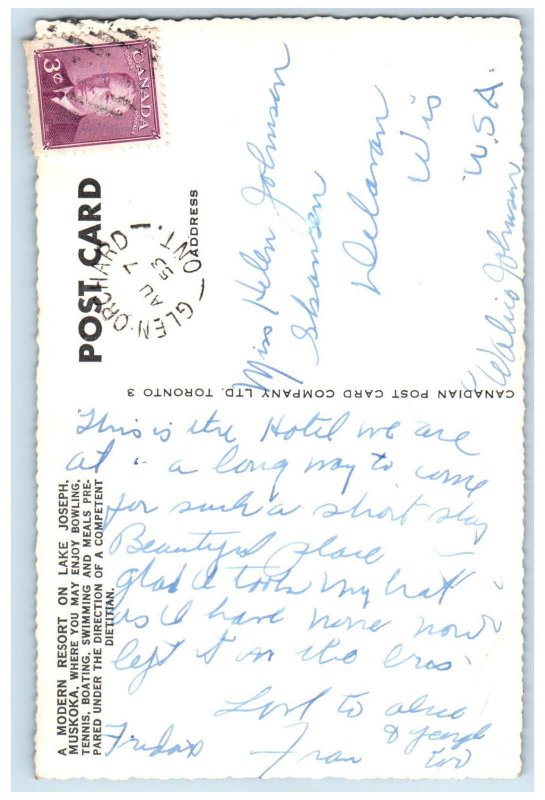 3¢
CANADA
POSTAGE
POST CARD
ADDRESS
GLEN ORCHARD
AU 7
53
ONT.
Miss Helen Johnson
Delavan
Wis
U.S.A.
Johnson
CANADIAN POST CARD COMPANY LTD. TORONTO 3
This is the Hotel we are
at - a long way to come
for such a short stay
Beautiful place
glad I took my hat
as I have none now
left it on the
Love to
Friday Fran & George
too
A MODERN RESORT ON LAKE JOSEPH,
MUSKOKA, WHERE YOU MAY ENJOY BOWLING,
TENNIS, BOATING, SWIMMING AND MEALS PRE-
PARED UNDER THE DIRECTION OF A COMPETENT
DIETITIAN.